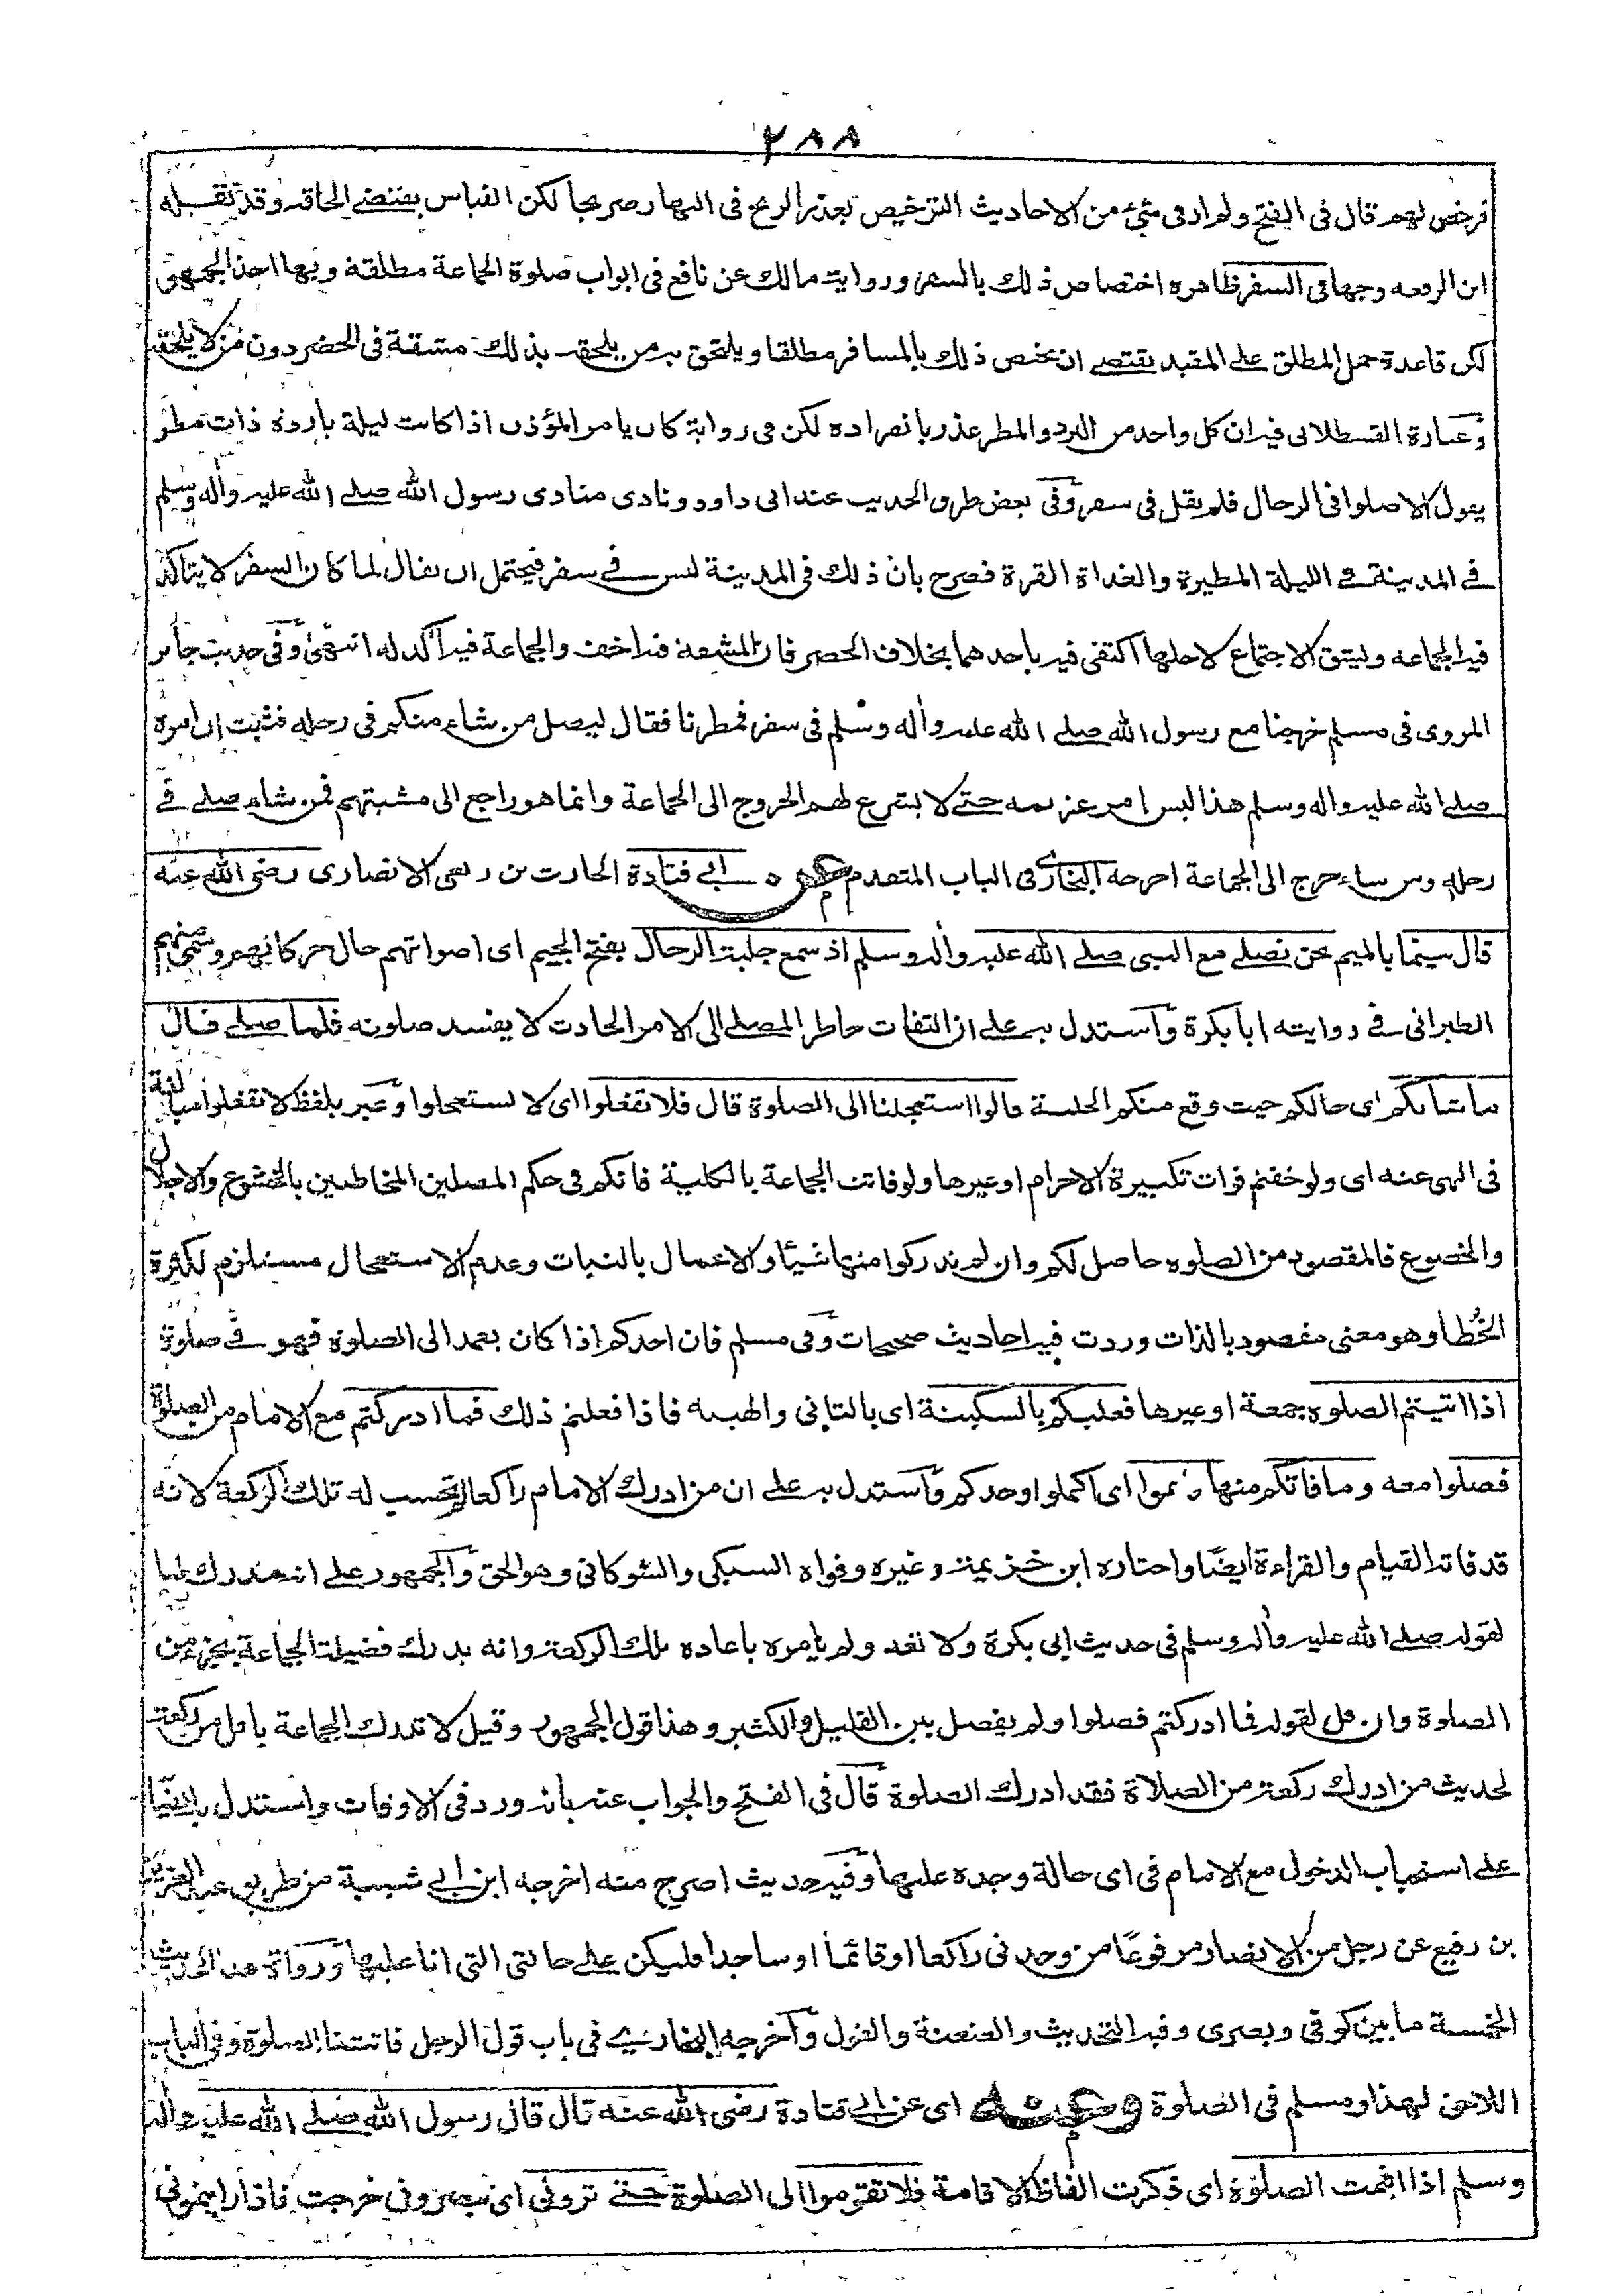 ٢٨٨
فرخص لهم قال في الفتح ولم ار في شيء من الاحاديث الترخيص بعذر الريح في النهار صريحا لكن القياس يقتضي الحاقه وقد نقله
ابن الرفعه وجها في السفر ظاهره اختصاص ذلك بالسفر ورواية مالك عن نافع في ابواب صلوة الجماعة مطلقة وبها اخذ الجمهور
لكن قاعدة حمل المطلق على المقيد يقتضي ان يختص ذلك بالمسافر مطلقا ويلتحق به من يلحقه بذلك مشقة في الحضر دون من لا يلحقه
وعبارة القسطلاني فيه ان كل واحد من البرد والمطر عذر بانفراده لكن في رواية كان يامر المؤذن اذا كانت ليلة باردة ذات مطر
يقول الا صلوا في الرحال فلم يقل في سفر وفي بعض طرق الحديث عند ابي داود ونادى منادى رسول الله صلى الله عليه وأله وسلم
في المدينة في الليلة المطيرة والغداة القرة فصرح بان ذلك في المدينة ليس في سفر فيحتمل ان يقال لما كان السفر لا يتاكد
فيه الجماعه ويشق الاجتماع لاجلها اكتفى فيه باحدهما بخلاف الحضر فان المشقة فيه اخف والجماعة فيه اكد له انتهى وفي حديث جابر
المروى في مسلم خرجنا مع رسول الله صلى الله عليه وأله وسلم في سفر فمطرنا فقال ليصل من شاء منكم في رحله فثبت ان امره
صلى الله عليه واله وسلم هذا ليس امر عزيمه حتى لا يشرع لهم الخروج الى الجماعة وانما هو راجع الى مشيتهم فمن شاء صلى في
رحله ومن شاء خرج الى الجماعة اخرجه البخاري في الباب المتقدم عن ابي قتادة الحارث بن ربعي الانصارى رضى الله عنه
قال بينما بالميم نحن نصلي مع النبي صلى الله عليه وأله وسلم اذ سمع جلبة الرجال بفتح الجيم اى اصواتهم حال حركاتهم وسمى منهم
الطبراني في روايته ابا بكرة وأستدل به على ان التفات خاطر المصلي الى الامر الحادث لا يفسد صلوته فلما صلى قال
ما شانكم اى حالكم حيث وقع منكم الجلبة قالوا استعجلنا الى الصلوة قال فلا تفعلوا اى لا تستعجلوا وعبر بلفظ لا تفعلوا مبالغة
في النهى عنه اى ولو خفتم فوات تكبيرة الاحرام او غيرها ولو فاتت الجماعة بالكلية فانكم في حكم المصلين المخاطبين بالخشوع والاجلال
والخضوع فالمقصود من الصلوه حاصل لكم وان لم تدركوا منها شيئا والاعمال بالنيات وعدم الاستعجال مستلزم لكثرة
الخُطا وهو معنى مقصود بالذات وردت فيه احاديث صحيحات وفي مسلم فان احدكم اذا كان يعمد الى الصلوة فهو في صلوة
اذا اتيتم الصلوه جمعة او غيرها فعليكم بالسكينة اى بالتاني والهينه فاذا فعلتم ذلك فما ادركتم مع الامام من الصلوة
فصلوا معه وما فاتكم منها فاتموا اى اكملوا وحدكم وأستدل به على ان من ادرك الامام راكعا لم تحسب له تلك الركعة لانه
قد فاته القيام والقراءة ايضا واختاره ابن خزيمة وغيره وقواه السبكى والشوكاني وهو الحق والجمهور على انه مدرك لها
لقوله صلى الله عليه وأله وسلم في حديث ابي بكرة ولا تعد ولم يامره باعاده تلك الركعة وانه يدرك فضيلة الجماعة بجزء من
الصلوة وان قل لقوله فما ادركتم فصلوا ولم يفصل بين القليل والكثير وهذا قول الجمهور وقيل لا تدرك الجماعة باقل من ركعة
لحديث من ادرك ركعة من الصلاة فقد ادرك الصلوة قال في الفتح والجواب عنه بانه ورد في الاوقات واستدل به ايضا
على استحباب الدخول مع الامام في اى حالة وجده عليها وفيه حديث اصرح منه اخرجه ابن ابي شيبة من طريق عبد العزيز
بن رفيع عن رجل من الانصار مرفوعًا من وجدني راكعا او قائما او ساجدا فليكن على حالتى التى انا عليها ورواة هذا الحديث
الخمسة ما بين كوفي وبصرى وفيه التحديث والعنعنة والقول وأخرجه البخاري في باب قول الرجل فاتتنا الصلوة وفي الباب
اللاحق لهذا ومسلم في الصلوة وعنه اى عن ابي قتادة رضى الله عنه قال قال رسول الله صلى الله عليه وأله
وسلم اذا اقيمت الصلوة اى ذكرت الفاظ الاقامة فلا تقوموا الى الصلوة حتى تروني اى تبصروني خرجت فاذا رايتموني